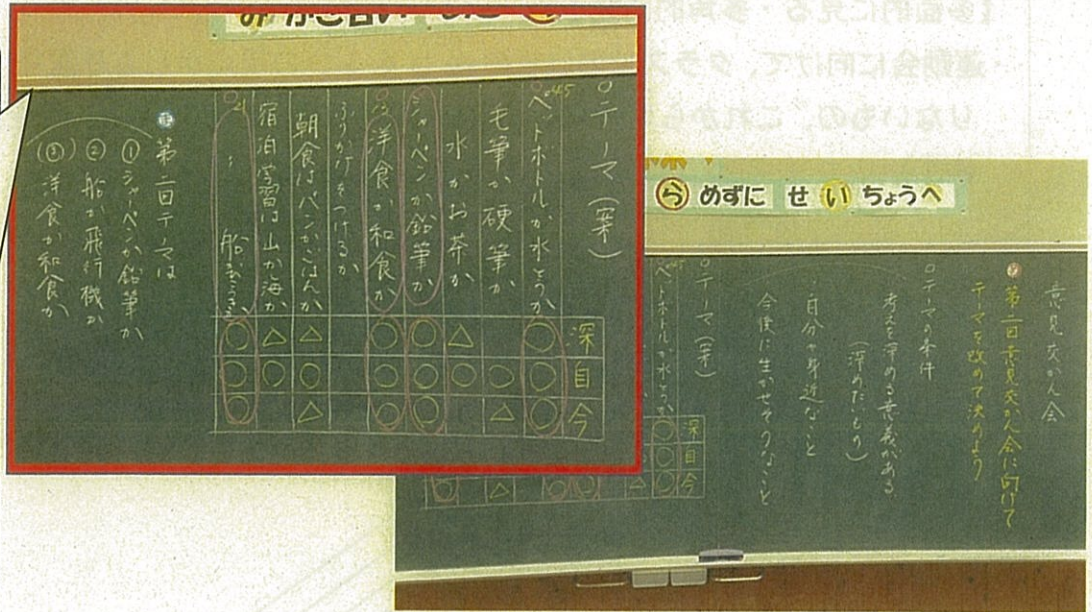 らめずに せいちょうへ
意見交かん会
第二回意見交かん会に向けて
テーマを改めて決めよう
○テーマの条件
考えを深める意義がある
(深めたいもの)
自分や身近なこと
今後に生かせそうなこと
○テーマ(案)
ペットボトルか水とうか
深
自
今
○テーマ(案)
ペットボトルか水とうか
毛筆か硬筆か
水かお茶か
シャーペンか鉛筆か
洋食か和食か
ふりかけをつけるか
朝食はパンかごはんか
宿泊学習は山か海か
深
自
今
第二回テーマは
①シャーペンか鉛筆か
②船か飛行機か
(③)洋食か和食か